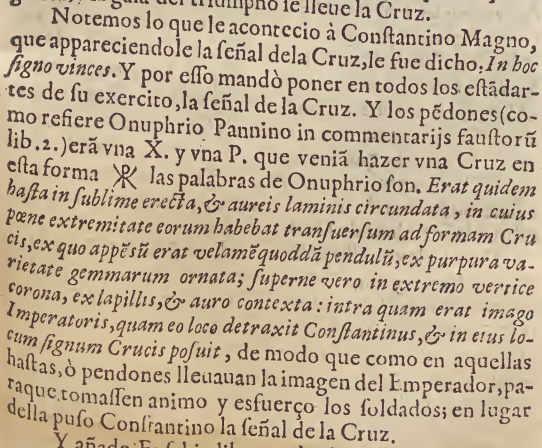 la guia del triumpho se lleue la Cruz.
Notemos lo que le acontecio à Conſtantino Magno,
que appareciendole la ſeñal dela Cruz, le fue dicho, In hoc
ſigno vinces. Y por eſſo mandò poner en todos los eſtãdar-
tes de ſu exercito, la ſeñal de la Cruz. Y los pẽdones (co-
mo refiere Onuphrio Pannino in commentarijs fauſtorũ
lib. 2.) erã vna X. y vna P. que veniã hazer vna Cruz en
eſta forma ☧ las palabras de Onuphrio ſon. Erat quidem
haſta in ſublime erecta, & aureis laminis circundata, in cuius
pœne extremitate eorum habebat tranſuerſum ad formam Cru
cis, ex quo appẽſũ erat velamẽ quoddã pendulũ, ex purpura va-
rietate gemmarum ornata; ſuperne vero in extremo vertice
corona, ex lapillis, & auro contexta: intra quam erat imago
Imperatoris, quam eo loco detraxit Conſtantinus, & in eius lo-
cum ſignum Crucis poſuit, de modo que como en aquellas
haſtas, ò pendones lleuauan la imagen del Emperador, pa-
raque tomaſſen animo y esfuerço los ſoldados; en lugar
della puſo Conſtantino la ſeñal de la Cruz.
Y añade